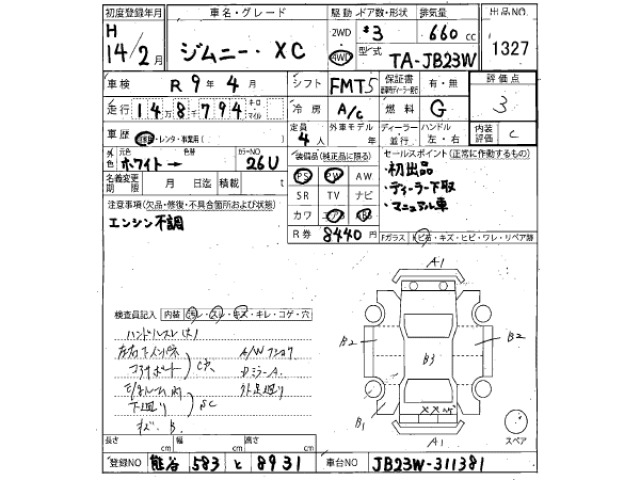 初度登録年月 車名・グレード 駆動 ドア数・形状 排気量 出品NO.
H 14/2月 ジムニー・XC 2WD 4WD #3 660cc 1327
型式 TA-JB23W
車検 R 9年 4月 シフト FMT5 保証書 有・無 評価点
走行 148794 キロ マイル 冷房 A/C 燃料 G 3
車歴 自家用・レンタ・事業用( ) 定員 4人 外車モデル 年 ディーラー 並行 ハンドル 左・右 内装評価 C
外色 元色 ホワイト→ 色替 カラーNO 26U 装備品(純正品に限る) セールスポイント(正常に作動するもの)
名義変更期限 月 日迄 積載 t PS PW AW ・初出品
SR TV ナビ ・ディーラー下取
注意事項(欠品・修復・不具合箇所および状態) カワ エアB ABS ・マニュアル車
エンジン不調 R券 8440円 Fガラス トビ石・キズ・ヒビ・ワレ・リペア跡
A1
検査員記入 内装 汚レ・スレ・キズ・キレ・コゲ・穴
ハンドルスレ(大)
B2 B3 B2
下廻り
B1 A1 スペア
長さ cm 幅 cm 高さ cm
登録NO 熊谷 583 と 8931 車台NO JB23W-311381